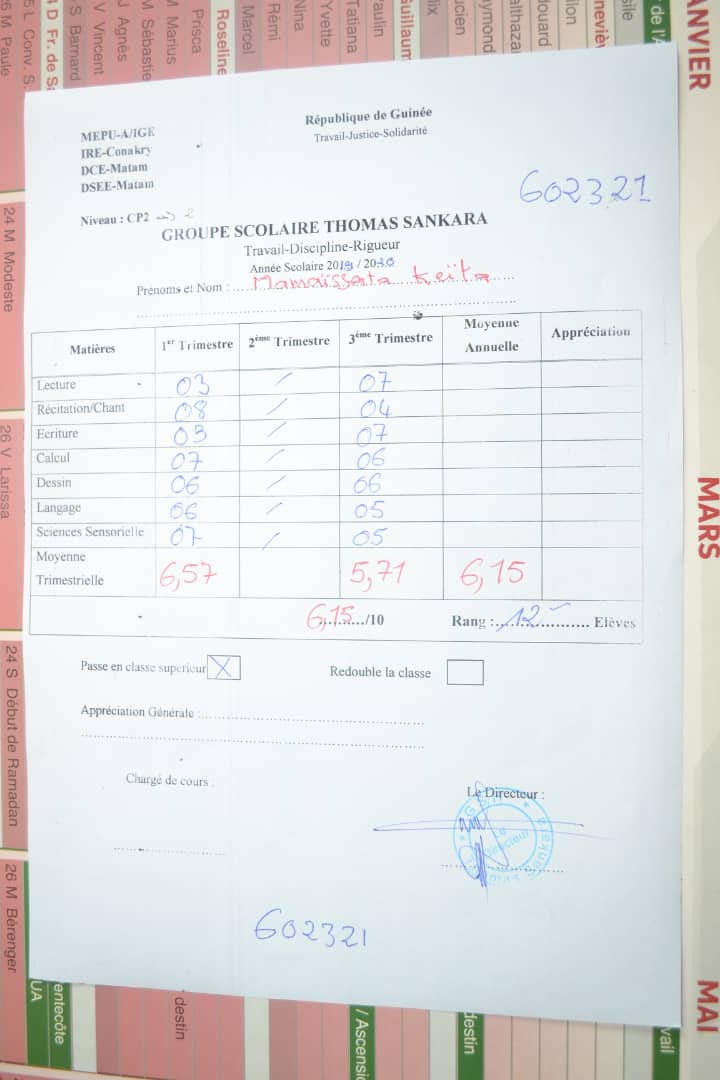 MEPU-A/IGE
IRE-Conakry
DCE-Matam
DSEE-Matam
République de Guinée
Travail-Justice-Solidarité
602321
Niveau : CP2 2
GROUPE SCOLAIRE THOMAS SANKARA
Travail-Discipline-Rigueur
Année Scolaire 2019 / 2020
Prénoms et Nom : Mamaïssata Keïta
Matières 1er Trimestre 2ème Trimestre 3ème Trimestre Moyenne Annuelle Appréciation
Lecture 03 / 07
Récitation/Chant 08 / 04
Ecriture 03 / 07
Calcul 07 / 06
Dessin 06 / 06
Langage 06 / 05
Sciences Sensorielle 07 / 05
Moyenne Trimestrielle 6,57 5,71 6,15
6,15/10 Rang : 12 Elèves
Passe en classe superieur X Redouble la classe
Appréciation Générale :
Chargé de cours : Le Directeur :
Le Directeur
Thomas Sankara
602321
JANVIER
MARS
MAI
24 M Modeste
26 V Larissa
24 S Début de Ramadan
26 M Bérenger
M Paule
L Conv. S.
D Fr. de Sa
S Barnard
V Vincent
J Agnès
M Sébastien
M Marius
Prisca
Roseline
Marcel
Rémi
Nina
Yvette
Tatiana
Paulin
Guillaum
entecôte
destin
/ Ascensi
destin